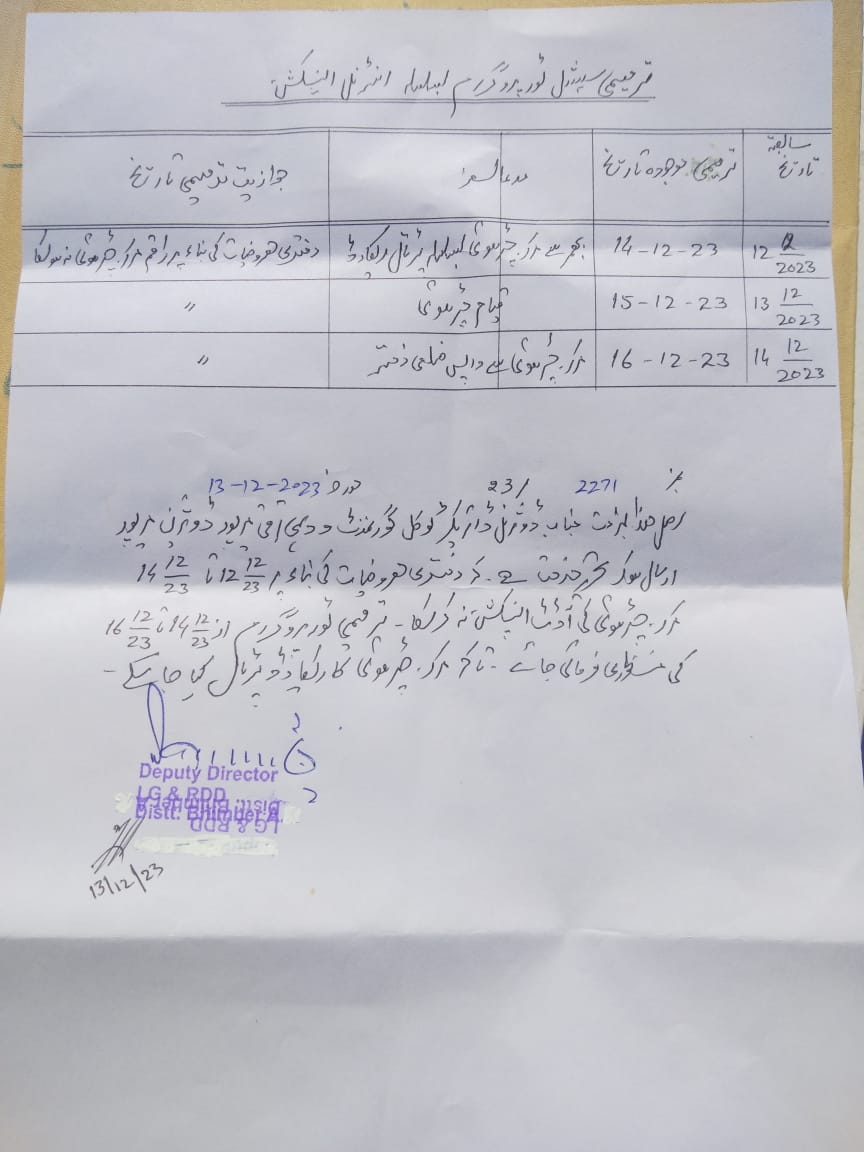 ترمیمی سپیشل ٹور پروگرام بسلسلہ انٹرنل انسپکشن۔
سابقہ تاریخ | ترمیمی موجودہ تاریخ | مدعا سفر | جوازیت ترمیمی تاریخ
12 12/2023 | 14-12-23 | بھمبر سے مرکز بسلسلہ پڑتال ریکارڈ | دفتری مصروفیات کی بناء پر راقم مرکز نہ ہو سکا
13 12/2023 | 15-12-23 | قیام | "
14 12/2023 | 16-12-23 | مرکز سے واپس ضلعی دفتر | "
نمبر 2271 /23 مورخہ 13-12-2023
اصل ھذا بخدمت جناب ڈویژنل ڈائریکٹر لوکل گورنمنٹ و دیہی ترقی میرپور ڈویژن میرپور
ارسال ہو کر تحریر خدمت ہے۔ کہ دفتری مصروفیات کی بناء پر 12 12/23 تا 14 12/23
مرکز کی آڈٹ انسپکشن نہ کر سکا۔ ترمیمی ٹور پروگرام از 14 12/23 تا 16 12/23
کی منظوری فرمائی جائے۔ تاکہ مرکز کا ریکارڈ پڑتال کیا جا سکے۔
Deputy Director
LG & RDD
Distt. Bhimber A.
LG & RDD
13/12/23